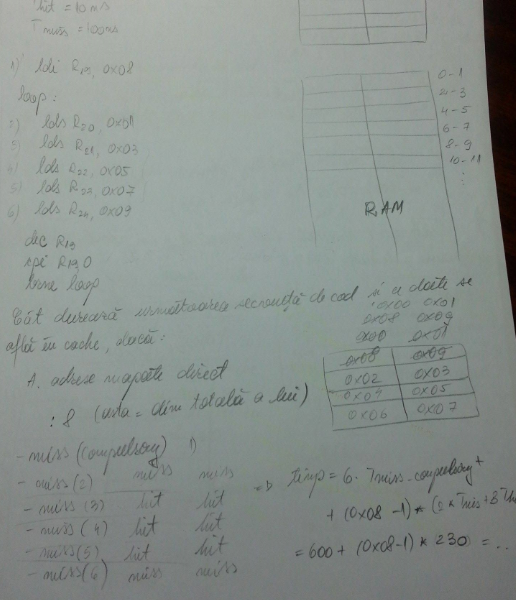 Thit = 10 ms
Tmiss = 100ms
1) ldi R19, 0x08
loop:
2) lds R20, 0x01
3) lds R21, 0x03
4) lds R22, 0x05
5) lds R23, 0x07
6) lds R24, 0x09
dec R19
cpi R19, 0
brne loop
0-1
2-3
4-5
6-7
8-9
10-11
RAM
Cât durează următoarea secvență de cod și ce date se
află în cache, dacă:
A. adrese mapate direct
: 8 (asta = dim totală a lui)
0x00 0x01
0x08 0x09
0x00 0x01
0x08 0x09
0x02 0x03
0x04 0x05
0x06 0x07
- miss (compulsory) 1)
- miss (2) miss miss
- miss (3) hit hit
- miss (4) hit hit
- miss (5) hit hit
- miss (6) miss miss
=> timp = 6 · Tmiss-compulsory +
+ (0x08 - 1) * (2 * Tmiss + 3 * Thit
= 600 + (0x08-1) * 230) = ...